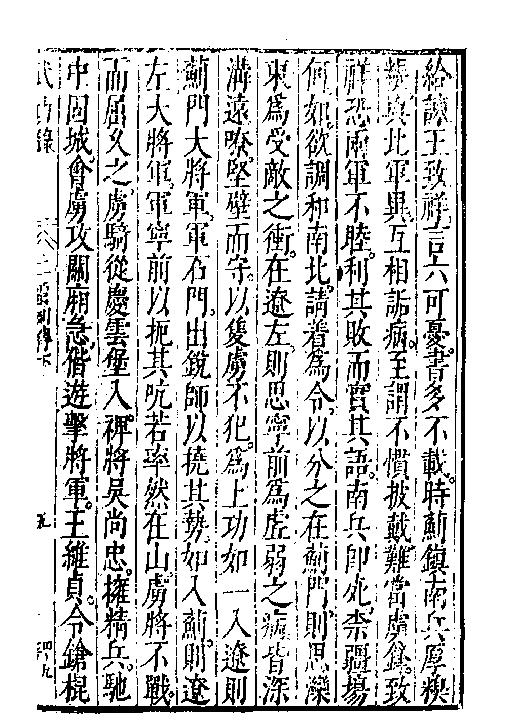 給諫王致祥言六可憂書多不載時薊鎮南兵厚糗
糒與北軍異互相詬病至謂不慣披戴難當虜鋒致
祥恐兩軍不睦利其敗而實其語南兵即死柰疆埸
何如欲調和南北請着為令以分之在薊門則思灤
東為受敵之衝在遼左則思寧前為虛弱之癥皆深
溝遠嘹堅壁而守以隻虜不犯為上功如一入遼則
薊門大將軍軍石門出銳師以撓其勢如入薊則遼
左大將軍軍寧前以扼其吭若率然在山虜將不戰
而屈久之虜騎從慶雲堡入裨將吳尚忠擁精兵馳
中固城會虜攻關廂急偕遊擊將軍王維貞令鎗棍
武功錄
列傳下
五